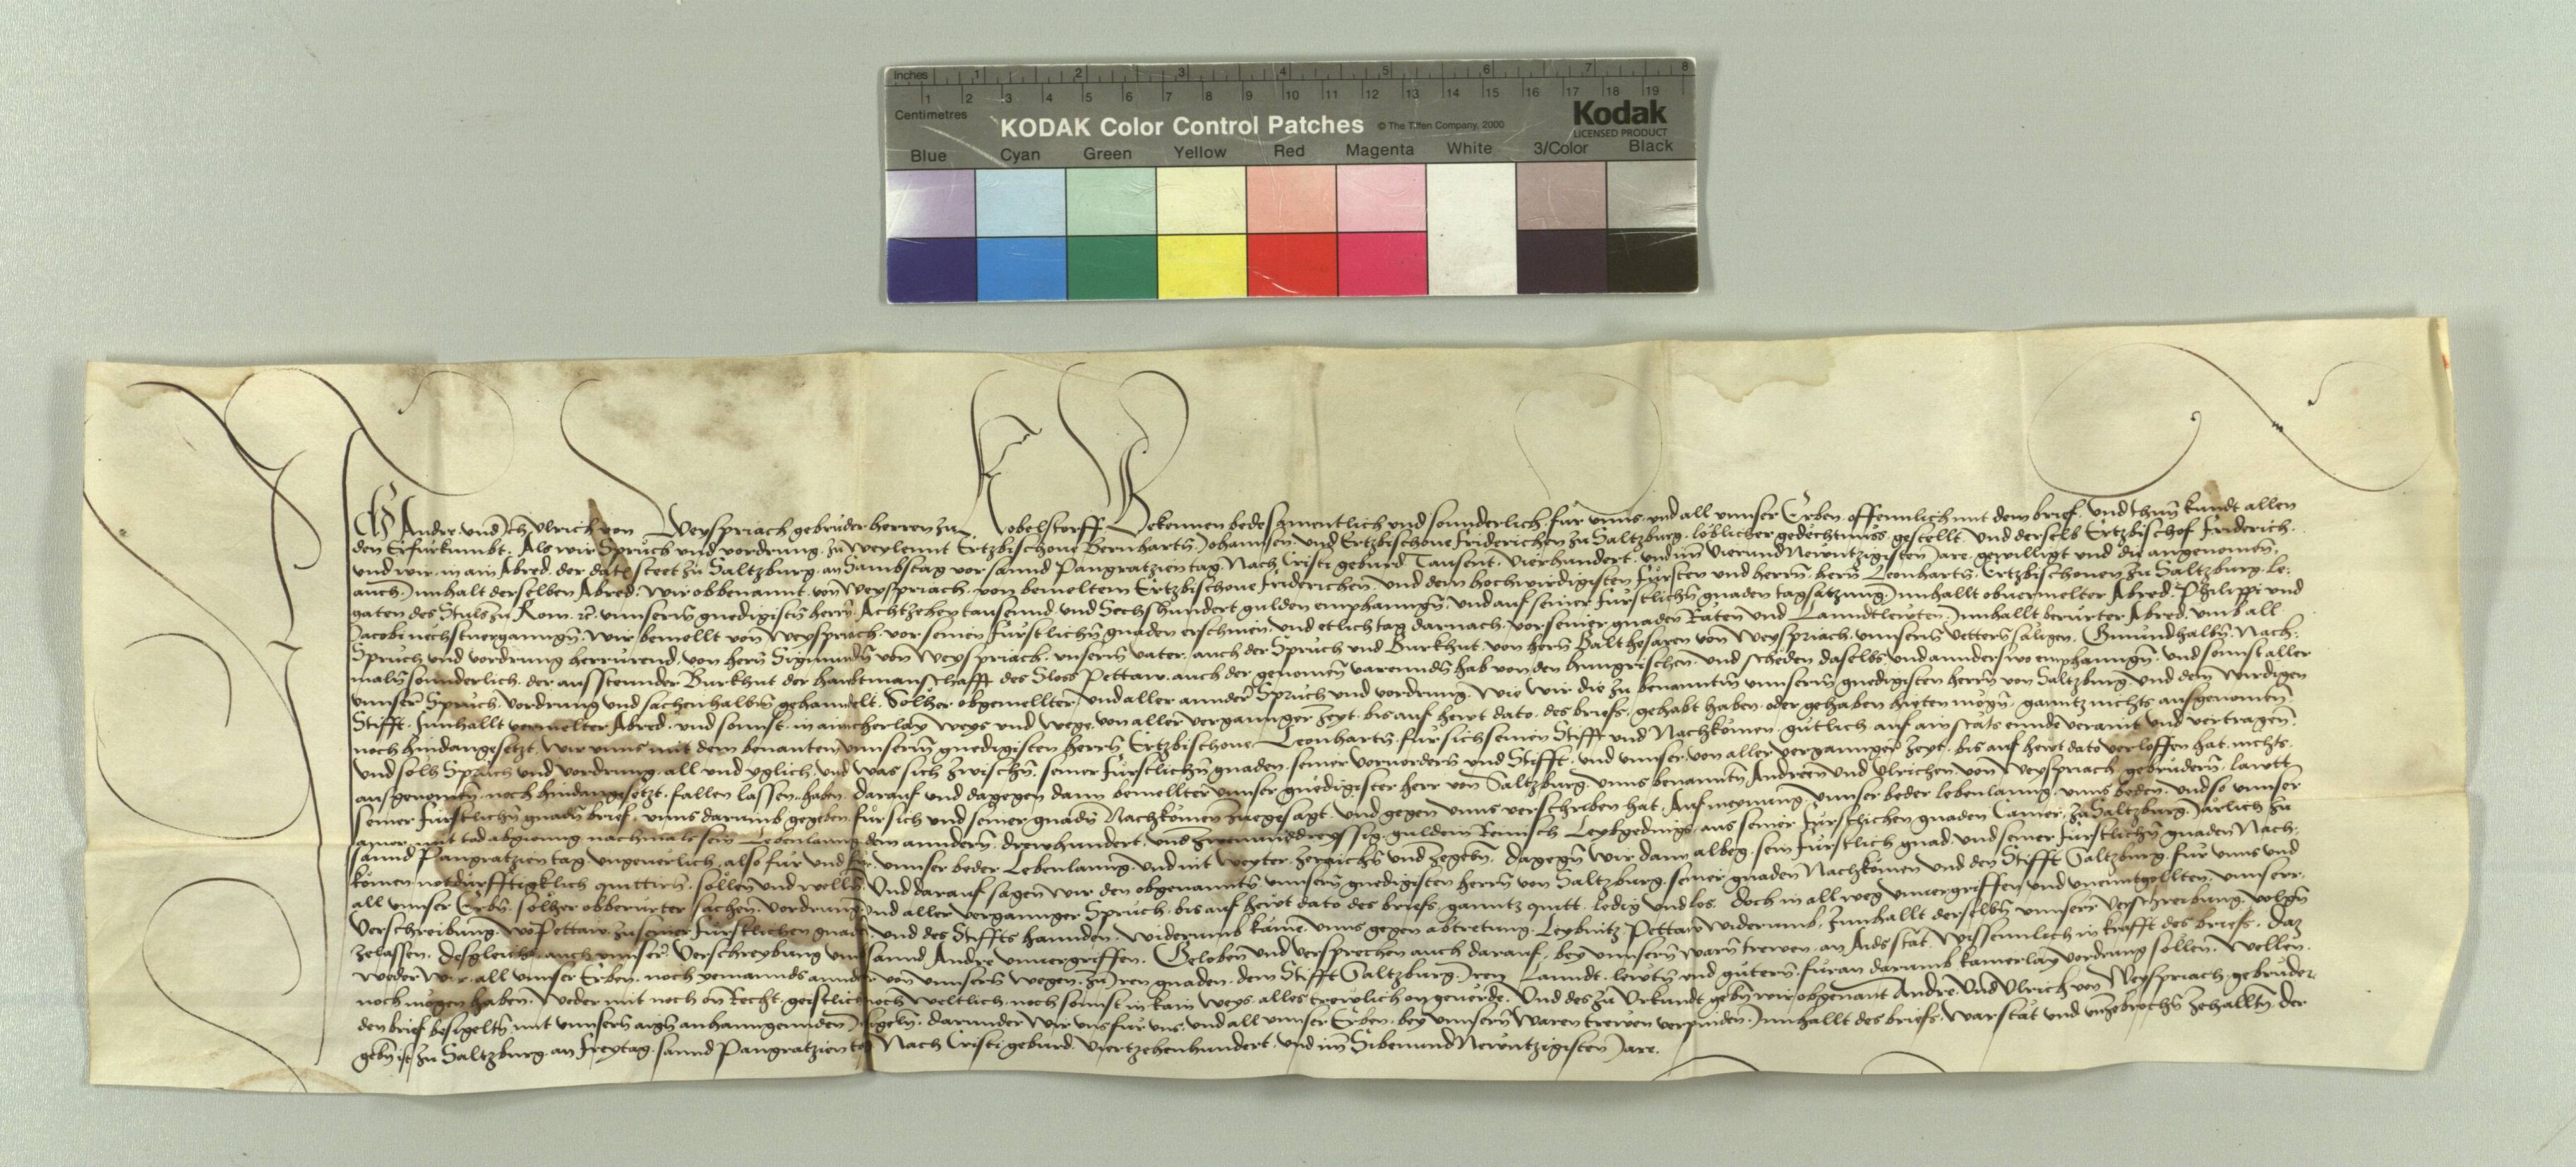 Inches 1 2 3 4 5 6 7 8
1 2 3 4 5 6 7 8 9 10 11 12 13 14 15 16 17 18 19
Centimetres
KODAK Color Control Patches © The Tiffen Company, 2000 Kodak
LICENSED PRODUCT
Blue Cyan Green Yellow Red Magenta White 3/Color Black
Ich Andre und Ich Ulrich von Weyspriach gebruder herren zu Kobelstorff Bekennen bede samentlich und sonnderlich fur unns und all unnser Erben offennlich mit dem brief und thun kundt allen
den Er furkumbt. Als wir Spruch und vordrung zu Weylennt Ertzbischove Bernharten Johannsen und Ertzbischove Friderichen zu Saltzburg loblicher gedechtnuss gestellt und derselb Ertzbischof Friderich
und wir in ain Abred der date steet zu Saltzburg an Sambstag vor sannd Pangratzien tag Nach Cristi geburd Tausent Vierhundert und im Vierund Newntzigisten Jare gewilligt und die angenomen
auch Innhalt derselben Abred wir obbenannt von Weyspriach von bemeltem Ertzbischove Friderichen und dem hochwirdigisten Fursten und herrn hern Leonharten Ertzbischoven zu Saltzburg Le-
gaten des Stuls zu Rom etc unnserm gnedigisten herrn Achtzehen tausennd und Sechshundert gulden emphanngen und auf seiner furstlichen gnaden tagsatzung Innhallt obvermelter Abred Philippi und
Jacobi nechstvergangen wir bemellt von Weyspriach vor seinen furstlichen gnaden erschinen und etlich tag darnach vor seiner gnaden Räten und Lanndtlewten Innhallt berurter Abred umb all
Spruch und vordrung herrurend von hern Sigmunden von Weyspriach unserm vater auch der Spruch und Burkhut von hern Balthesaren von Weyspriach unnserm vettern säligen Gmund halben Nach-
maln sonnderlich der aussteennder Burkhut der haubtmanschafft des Sloss Pettaw auch der genomen varennden hab von den hungrischen und scheden daselbs und annderswo emphanngen und sonnst aller
unnser Spruch vordrung und sachen halben gehanndelt Solher obgemellter und aller annder Spruch und vordrung wie wir die zu benanntem unnserm gnedigisten herrn von Saltzburg und dem wirdigen
Stifft Innhallt vermelter Abred und sonnst in ainicherlay weys und wege von aller verganngner zeyt bis auf hewt dato des briefs gehabt haben oder gehaben hieten mogen ganntz nichts ausgenomen
noch hindangesetzt wir unns mit dem benanten unnserm gnedigisten herrn Ertzbischove Leonharten fur sich seinen Stifft und Nachkomen gutlich auf ain stäts ennde veraint und vertragen
und solh Spruch und vordrung all und yglich und was sich zwischen seiner furstlichen gnaden seiner vorvordern und Stifft und unnser von aller verganngner zeyt bis auf hewt dato verloffen hat nichts
ausgenomen noch hindangesetzt fallen lassen haben darauf und dagegen dann bemellter unnser gnedigister herr von Saltzburg unns benannten Andreen und Ulrichen von Weyspriach gebrudern lawtt
seiner furstlichen gnaden brief unns darumb gegeben fur sich und seiner gnaden Nachkomen zuegesagt und gegen unns verschriben hat Auf meynung unnser beder lebenlanng unns beden und so unnser
ainer mit tod abgieng nachmals sein Lebenlanng dem anndern drewhundert und zwenunddreyssig guldein Reinisch Leybgedings aus seiner furstlichen gnaden Camer zu Saltzburg Järlich zu
sannd Pangratzien tag ungeverlich also fur und fur unnser beder Lebenlanng und nit weyter zeraichen und zegeben Dagegen wir dann albeg sein furstlich gnad und seiner furstlichen gnaden Nach-
komen notdurfftigklich quittirn sollen und wellen Und darauf sagen wir den obgenannten unnsern gnedigisten herrn von Saltzburg seiner gnaden Nachkomen und den Stifft Saltzburg fur unns und
all unnser Erben solher obberurter sachen vordrung und aller verganngner Spruch bis auf hewt dato des briefs ganntz quitt ledig und los. Doch in all weg unvergriffen und unentgollten unnserr
Verschreibung wo Pettaw zu seiner furstlichen gnaden und des Stiffts hannden widerumb käme unns gegen abtretung Leybnitz Pettaw widerumb Innhallt derselben unnserr Verschreibung volgen
zelassen Desgleichs auch unnser Verschreybung umb sannd Andre unvergriffen. Geloben und versprechen auch darauf bey unnsern warn trewen an Aids stat wissennlich in krafft des briefs. Daz
weder wir all unnser Erben noch yemannds annder von unnsern wegen zu Iren gnaden dem Stifft Saltzburg Iren Lanndt lewten und gutern furan darumb kainerlay vordrung sollen wellen
noch mogen haben Weder mit noch on Recht geistlich noch weltlich noch sonnst in kain weys alles trewlich on geverde. Und des zu Urkundt geben wir obgenant Andre und Ulrich von Weyspriach gebruder
den brief besigelten mit unnsern aigen anhanngennden Insigeln darunder wir uns fur uns und all unnser Erben bey unnsern waren trewen verpinden Innhallt des briefs war stät und unzebrochen zehallten der
geben ist zu Saltzburg an Freytag sannd Pangratzien tag Nach Cristi geburd Viertzehenhundert und im Sibenund Newntzigisten Jare.